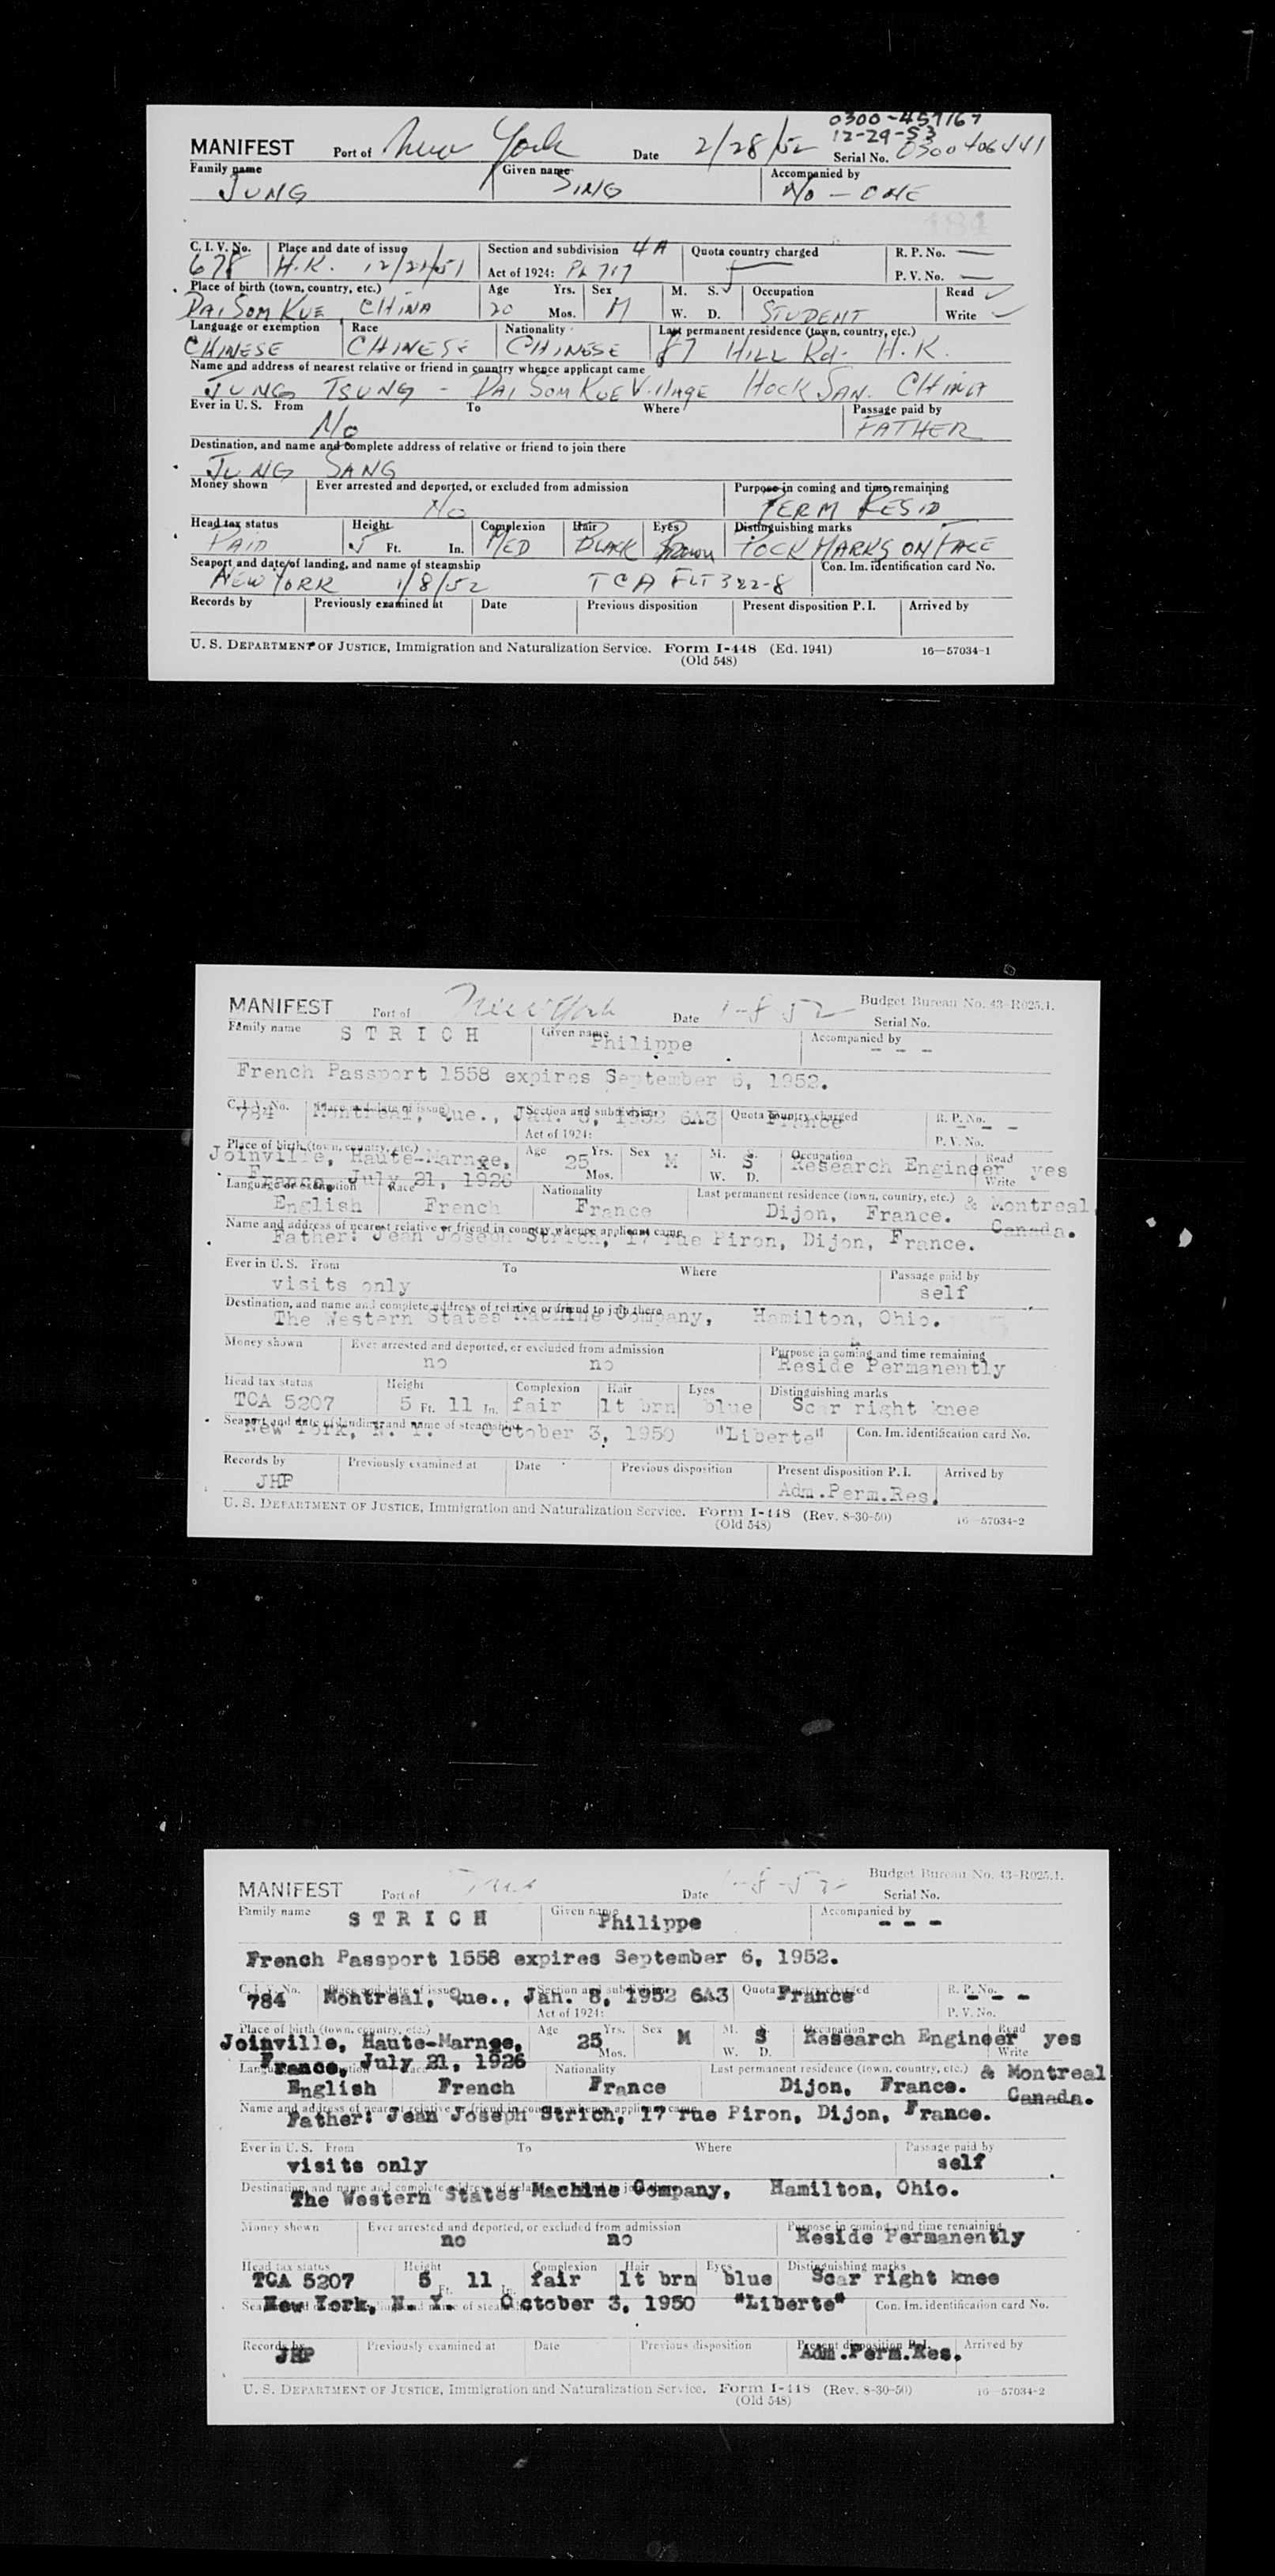 0300-457167
12-29-53
MANIFEST Port of New York Date 2/28/52 Serial No. 0300406441
Family name Given name Accompanied by
JUNG SING NO - ONE
184
C. I. V. No. Place and date of issue Section and subdivision 4A Quota country charged R. P. No. —
678 H.K. Act of 1924: PL 717 P. V. No. —
Place of birth (town, country, etc.) Age Yrs. Sex M. S. ✓ Occupation Read ✓
DAI SOM KUE, CHINA 20 Mos. M W. D. STUDENT Write ✓
Language or exemption Race Nationality Last permanent residence (town, country, etc.)
CHINESE CHINESE CHINESE 87 HILL Rd. H.K.
Name and address of nearest relative or friend in country whence applicant came
JUNG TSUNG - DAI SOM KUE Village HOCK SAN. CHINA
Ever in U. S. From To Where Passage paid by
No FATHER
Destination, and name and complete address of relative or friend to join there
JUNG SANG
Money shown Ever arrested and deported, or excluded from admission Purpose in coming and time remaining
No PERM RESID
Head tax status Height Complexion Hair Eyes Distinguishing marks
PAID 5 Ft. In. MED BLACK Brown POCK MARKS ON FACE
Seaport and date of landing, and name of steamship Con. Im. identification card No.
NEW YORK 1/8/52 TCA FLT 322-8
Records by Previously examined at Date Previous disposition Present disposition P. I. Arrived by
U. S. DEPARTMENT OF JUSTICE, Immigration and Naturalization Service. Form I-448 (Ed. 1941) 16—57034-1
(Old 548)
MANIFEST Port of New York Date 1-8 52 Budget Bureau No. 43-R025.1.
Serial No.
Family name Given name Accompanied by
S T R I C H Philippe - - -
French Passport 1558 expires September 6, 1952.
C. I. V. No. Place and date of issue Section and subdivision Quota country charged R. P. No.
784 Montreal, Que., Jan. 8, 1952 6A3 France - - -
Act of 1924: P. V. No.
Place of birth (town, country, etc.) Age Yrs. Sex M. S. Occupation Read
Joinville, Haute-Marnxe, 25 Mos. M W. D. S Research Engineer Write yes
France, July 21, 1926
Language or exemption Race Nationality Last permanent residence (town, country, etc.) & Montreal
English French France Dijon, France. Canada.
Name and address of nearest relative or friend in country whence applicant came
Father: Jean Joseph Strich, 17 rue Piron, Dijon, France.
Ever in U. S. From To Where Passage paid by
visits only self
Destination, and name and complete address of relative or friend to join there
The Western States Machine Company, Hamilton, Ohio.
Money shown Ever arrested and deported, or excluded from admission Purpose in coming and time remaining
no no Reside Permanently
Head tax status Height Complexion Hair Eyes Distinguishing marks
TCA 5207 5 Ft. 11 In. fair lt brn blue Scar right knee
Seaport and date of landing and name of steamship Con. Im. identification card No.
New York, N. Y. October 3, 1950 "Liberte"
Records by Previously examined at Date Previous disposition Present disposition P. I. Arrived by
JHP Adm.Perm.Res.
U. S. DEPARTMENT OF JUSTICE, Immigration and Naturalization Service. Form I-448 (Rev. 8-30-50) 16—57034-2
(Old 548)
MANIFEST Port of Date 1-8-52 Budget Bureau No. 43-R025.1.
Serial No.
Family name Given name Accompanied by
S T R I C H Philippe - - -
French Passport 1558 expires September 6, 1952.
C. I. V. No. Place and date of issue Section and subdivision Quota country charged R. P. No.
784 Montreal, Que., Jan. 8, 1952 6A3 France - - -
Act of 1924: P. V. No.
Place of birth (town, country, etc.) Age Yrs. Sex M. S. Occupation Read
Joinville, Haute-Marnxe, 25 Mos. M W. D. S Research Engineer Write yes
France, July 21, 1926
Language or exemption Race Nationality Last permanent residence (town, country, etc.) & Montreal
English French France Dijon, France. Canada.
Name and address of nearest relative or friend in country whence applicant came
Father: Jean Joseph Strich, 17 rue Piron, Dijon, France.
Ever in U. S. From To Where Passage paid by
visits only self
Destination, and name and complete address of relative or friend to join there
The Western States Machine Company, Hamilton, Ohio.
Money shown Ever arrested and deported, or excluded from admission Purpose in coming and time remaining
no no Reside Permanently
Head tax status Height Complexion Hair Eyes Distinguishing marks
TCA 5207 5 Ft. 11 In. fair lt brn blue Scar right knee
Seaport and date of landing and name of steamship Con. Im. identification card No.
New York, N. Y. October 3, 1950 "Liberte"
Records by Previously examined at Date Previous disposition Present disposition P. I. Arrived by
JHP Adm.Perm.Res.
U. S. DEPARTMENT OF JUSTICE, Immigration and Naturalization Service. Form I-448 (Rev. 8-30-50) 16—57034-2
(Old 548)